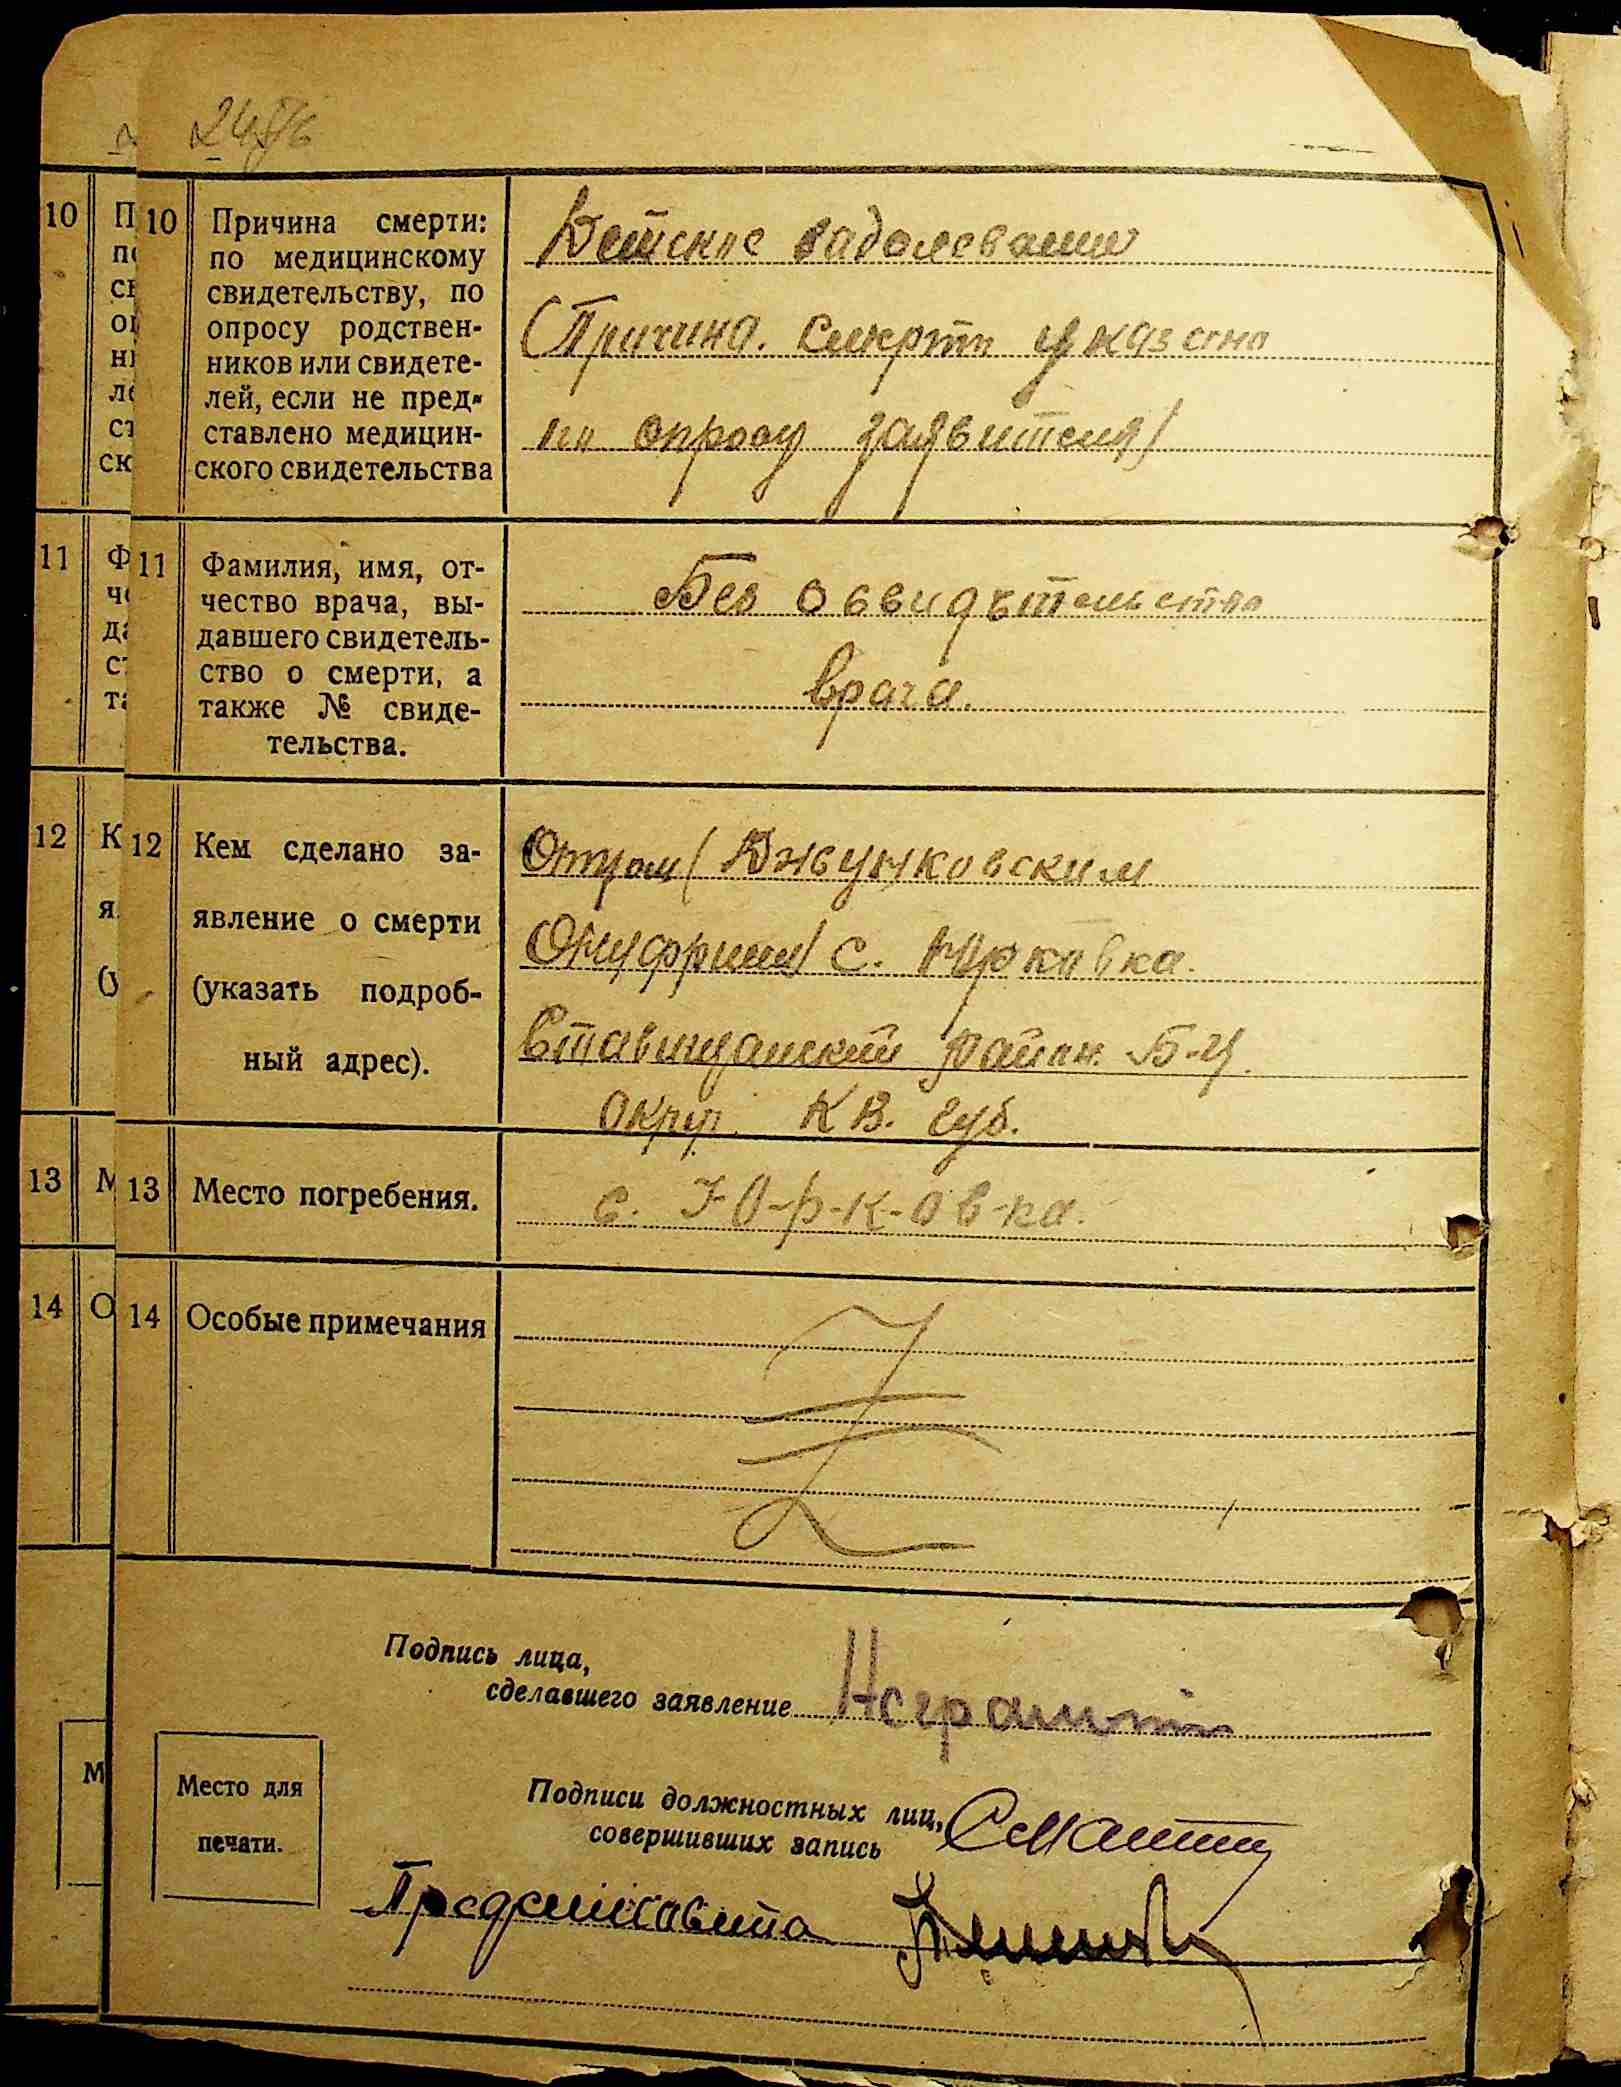 10 Причина смерти:
по медицинскому
свидетельству, по
опросу родствен-
ников или свидете-
лей, если не пред-
ставлено медицин-
ского свидетельства
Детские заболевание
(Причина. Смерти указана
по опросу заявителя)
11 Фамилия, имя, от-
чество врача, вы-
давшего свидетель-
ство о смерти, а
также № свиде-
тельства.
Без
врача.
12 Кем сделано за-
явление о смерти
(указать подроб-
ный адрес).
Отцом (Джунковским
Онуфрием) с. Юрковка.
Ставищанский район. Б-Ц.
Округ. КВ. губ.
13 Место погребения.
с. Ю-р-к-о в-ка.
14 Особые примечания
Подпись лица,
сделавшего заявление Неграмотн
Подписи должностных лиц,
совершивших запись
Место для
печати.
Предсильсовета
10 П
по
св
оп
ни
ле
ст
ск
11 Ф
че
да
ст
та
12 К
я
(у
13 М
14 О
М